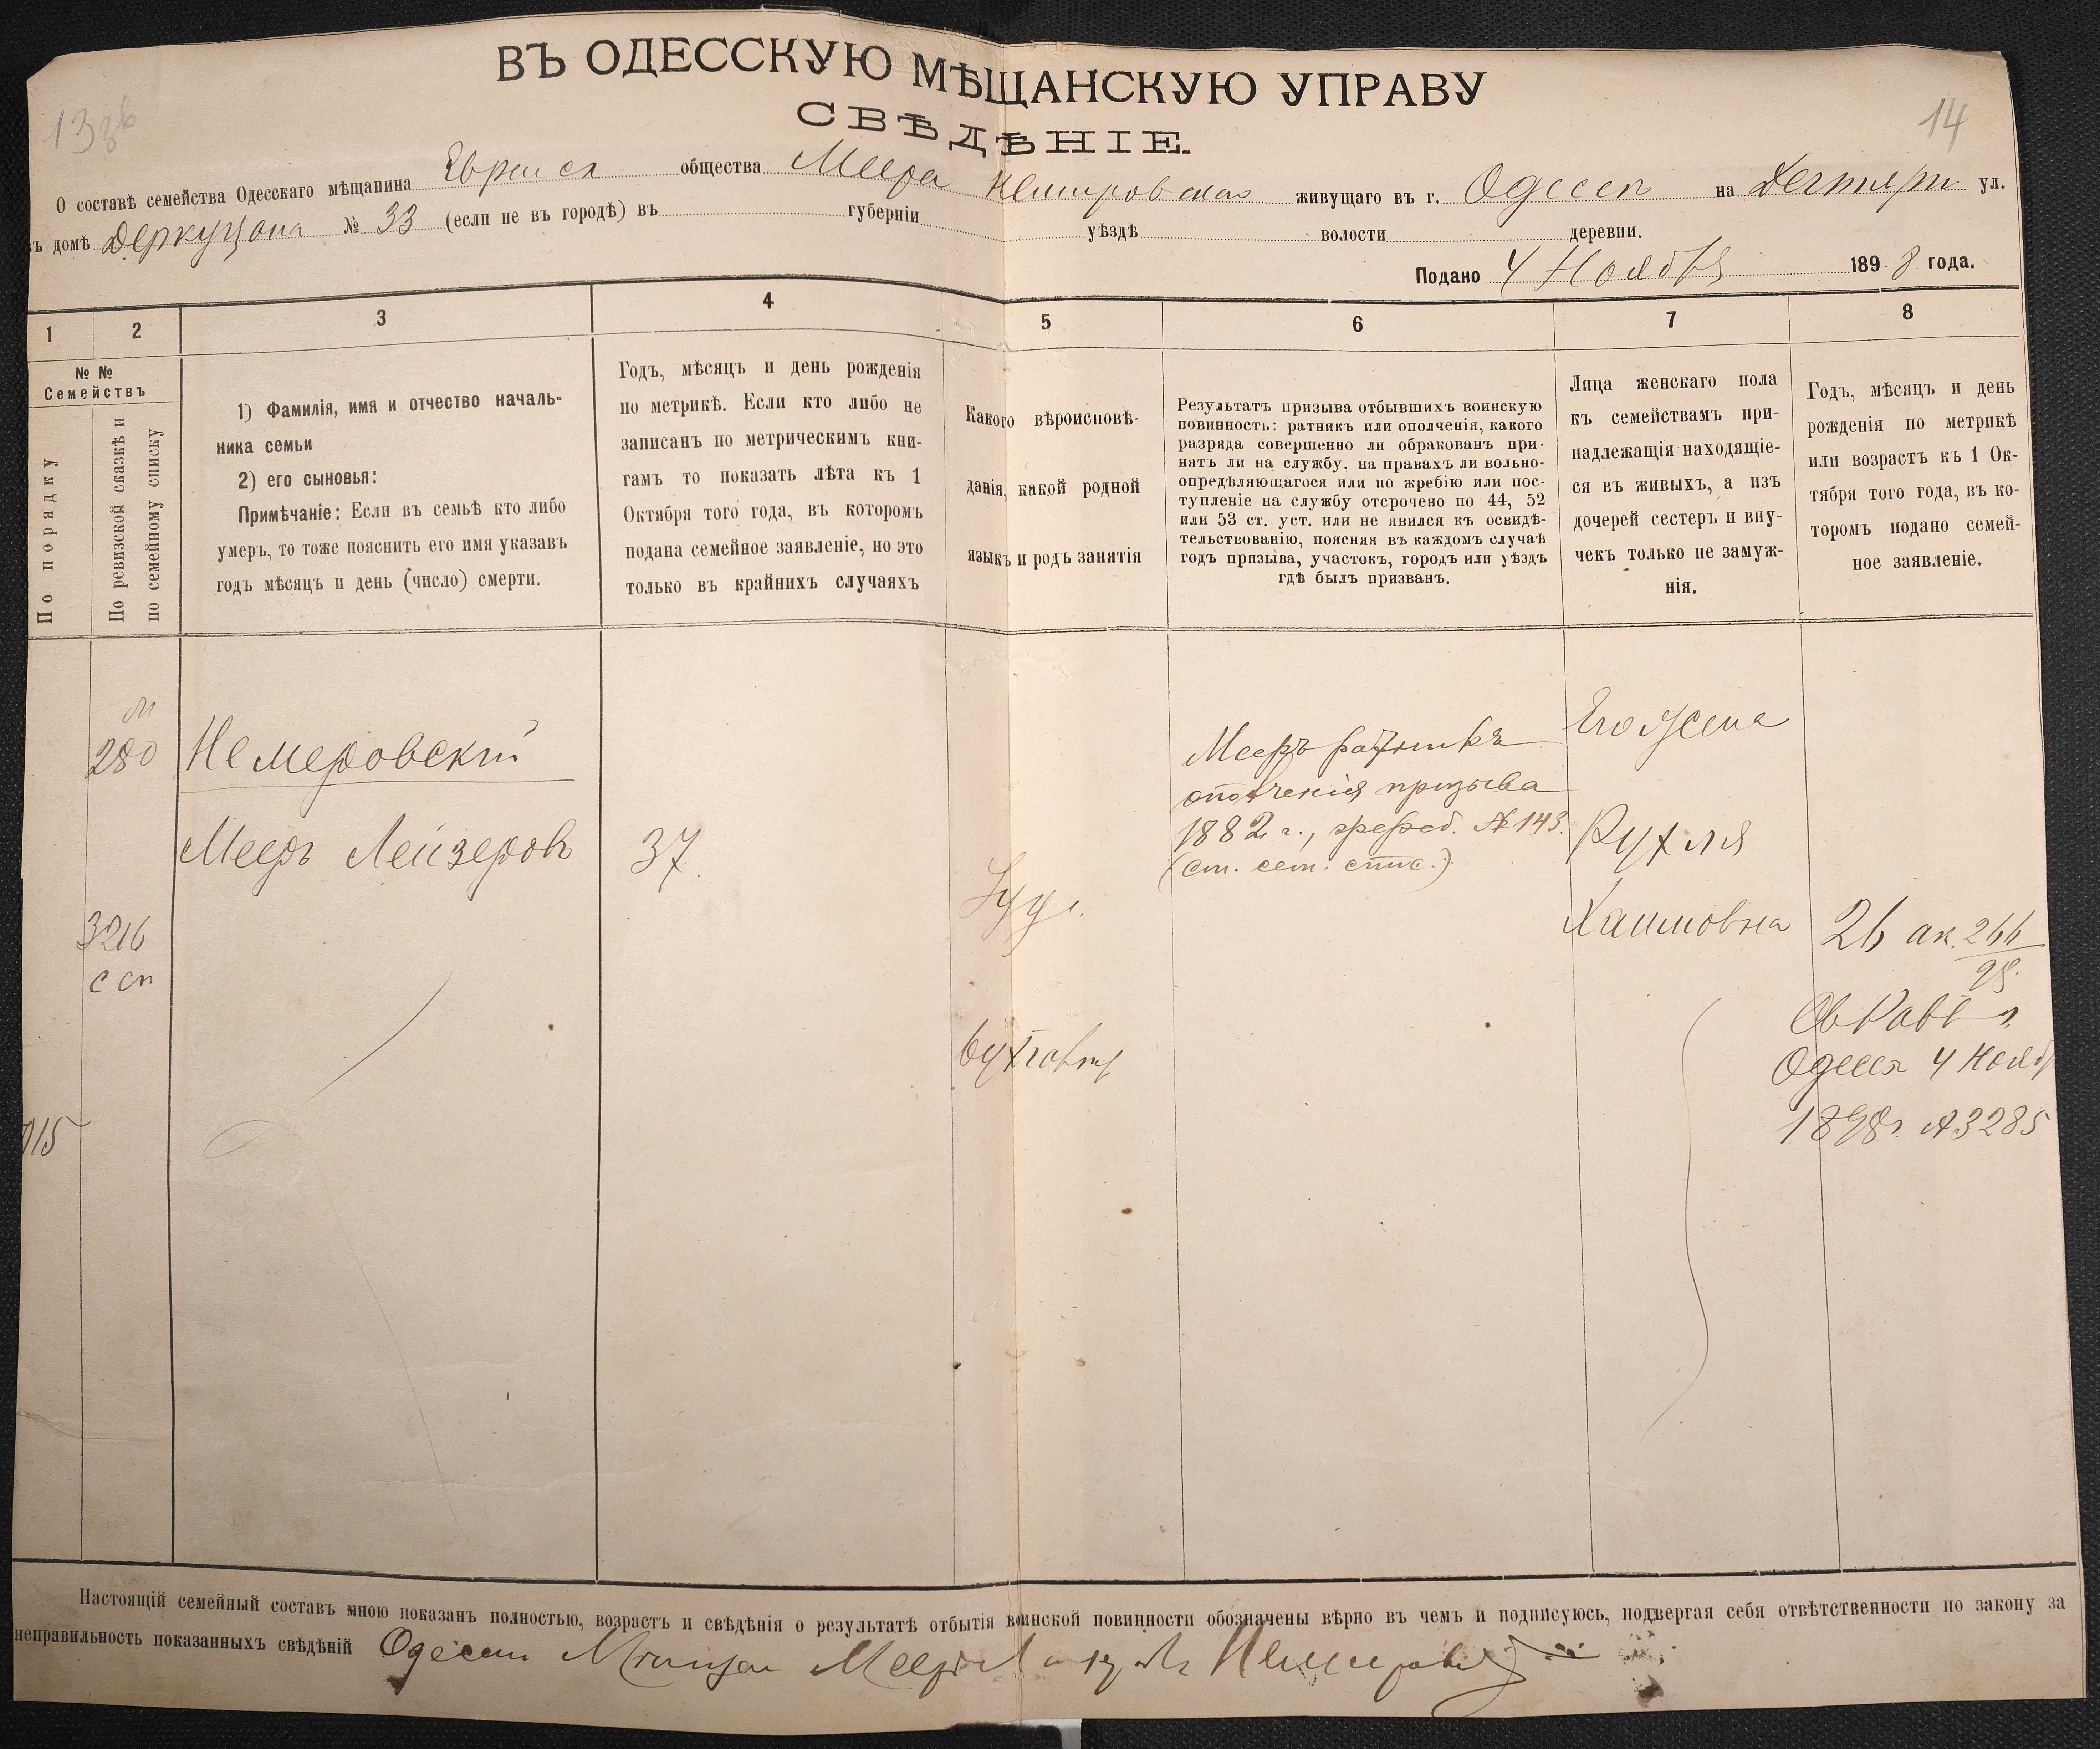 ВЪ ОДЕССКУЮ МѢЩАНСКУЮ УПРАВУ
СВѢДѢНІЕ.
14
О составѣ семейства Одесскаго мѣщанина Евр. общества Меера Немировскаго живущаго въ г. Одессѣ на Дегтярн ул.
въ домѣ № 33 (если не въ городѣ) въ губерніи уѣздѣ волости деревни.
Подано 4 Ноября 1898 года.
1 2 3 4 5 6 7 8
№ №
Семействъ
По порядку
По ревизской сказкѣ и
по семейному списку
1) Фамилія, имя и отчество началь-
ника семьи
2) его сыновья:
Примѣчаніе: Если въ семьѣ кто либо
умеръ, то тоже пояснить его имя указавъ
годъ мѣсяцъ и день (число) смерти.
Годъ, мѣсяцъ и день рожденія
по метрикѣ. Если кто либо не
записанъ по метрическимъ кни-
гамъ то показать лѣта къ 1
Октября того года, въ которомъ
подана семейное заявленіе, но это
только въ крайнихъ случаяхъ
Какого вѣроисповѣ-
данія, какой родной
языкъ и родъ занятія
Результатъ призыва отбывшихъ воинскую
повинность: ратникъ или ополченія, какого
разряда совершенно ли обракованъ при-
нятъ ли на службу, на правахъ ли вольно-
опредѣляющагося или по жребію или пос-
тупленіе на службу отсрочено по 44, 52
или 53 ст. уст. или не явился къ освидѣ-
тельствованію, поясняя въ каждомъ случаѣ
годъ призыва, участокъ, городъ или уѣздъ
гдѣ былъ призванъ.
Лица женскаго пола
къ семействамъ при-
надлежащія находящіе-
ся въ живыхъ, а изъ
дочерей сестеръ и вну-
чекъ только не замуж-
нія.
Годъ, мѣсяцъ и день
рожденія по метрикѣ
или возрастъ къ 1 Ок-
тября того года, въ ко-
торомъ подано семей-
ное заявленіе.
280
Немеровскій
Мееръ Лейзеровъ
37.
Мееръ ратникъ
ополченія призыва
1882 г., жереб. № 143.
(см. сем. спис.)
Его жена
Рухля
Хаимовна
3216
с сп
Іуд.
26 ак. 266/98.
Одесса 4 Нояб
1898 г. № 3285
Настоящій семейный составъ мною показанъ полностью, возрастъ и свѣдѣнія о результатѣ отбытія воинской повинности обозначены вѣрно въ чемъ и подписуюсь, подвергая себя отвѣтственности по закону за
неправильность показанныхъ свѣдѣній Одесски Мещан Меер Немировский